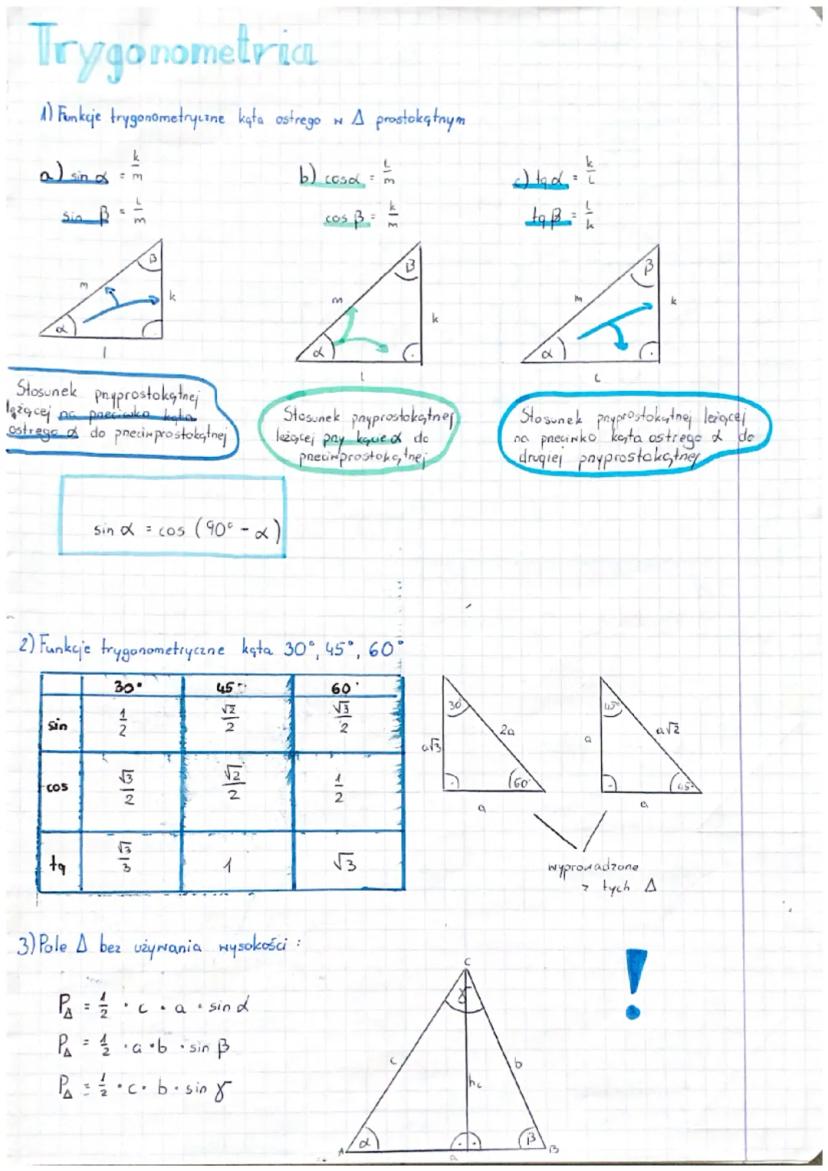 Trygonometria
1) Funkcje trygonometryczne kąta ostrego w Δ prostokątnym
a) sin α = k/m
sin β = l/m
b) cos α = l/m
cos β = k/m
c) tg α = k/l
tg β = l/k
m β k α l
m β k α l
m β k α l
Stosunek przyprostokątnej
leżącej na przeciwko kąta
ostrego α do przeciwprostokątnej
Stosunek przyprostokątnej
leżącej przy kącie α do
przeciwprostokątnej
Stosunek przyprostokątnej leżącej
na przeciwko kąta ostrego α do
drugiej przyprostokątnej
sin α = cos (90° - α)
2) Funkcje trygonometryczne kąta 30°, 45°, 60°
30° 45° 60°
sin 1/2 √2/2 √3/2
cos √3/2 √2/2 1/2
tg √3/3 1 √3
30° a√3 2a 60° a
45° a a√2 45° a
wyprowadzone
z tych Δ
3) Pole Δ bez używania wysokości :
P_Δ = 1/2 · c · a · sin α
P_Δ = 1/2 · a · b · sin β
P_Δ = 1/2 · c · b · sin γ
!
C
γ
c hc b
α β
A a B